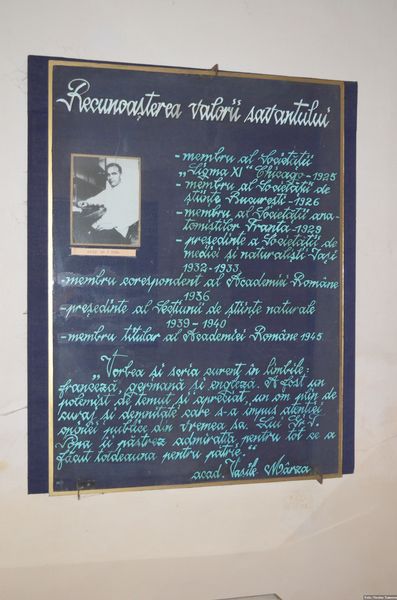 Recunoașterea valorii savantului
- membru al Societății
„Sigma XI" Chicago - 1925
- membru al Societății de
științe București - 1926
- membru al Societății ana-
tomiștilor Franța - 1929
- președinte a Societății de
medici și naturaliști Iași
1932-1933
- membru corespondent al Academiei Române
1936
- președinte al Secțiunii de științe naturale
1939 - 1940
- membru titular al Academiei Române 1945
„Vorbea și scria curent în limbile:
franceză, germană și engleză. A fost un
polemist de temut și apreciat, un om plin de
curaj și demnitate care s-a impus atenției
opiniei publice din vremea sa. Lui Gr. T.
Popa îi păstrez admirația pentru tot ce a
făcut totdeauna pentru patrie."
acad. Vasile Mârza